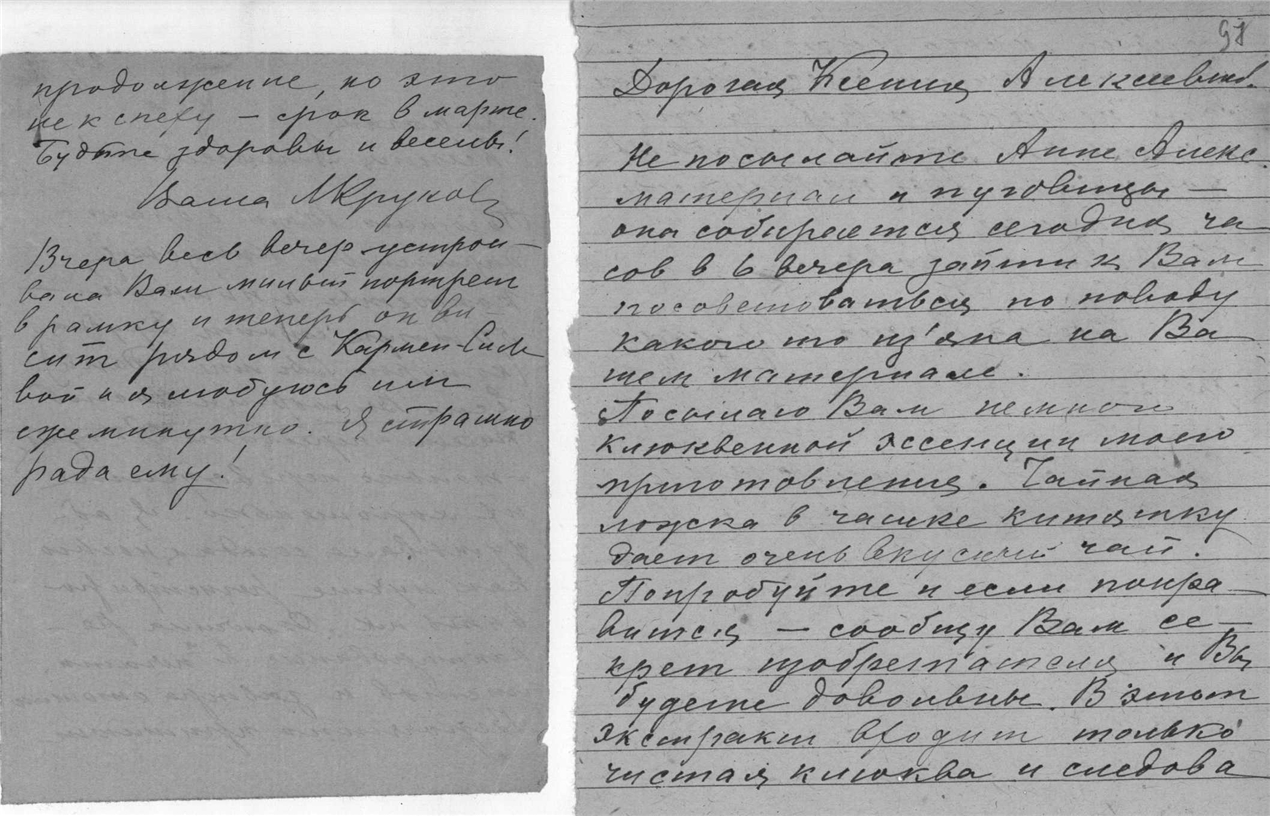 продолжение, но это
не к спеху — срок в марте.
Будьте здоровы и веселы!
Ваша МКрукова
Вчера весь вечер устраи-
вала Ваш милый портрет
в рамку и теперь он ви-
сит рядом с Кармен-Силь
вой и я любуюсь им
ежеминутно. Я страшно
рада ему!
97
Дорогая Ксения Алексеевна.
Не посылайте Анне Алекс.
материал и пуговицы —
она собирается сегодня ча-
сов в 6 вечера зайти к Вам
посоветоваться по поводу
какого то из'яна на Ва-
шем материале.
Посылаю Вам немного
клюквенной эссенции моего
приготовления. Чайная
ложка в чашке кипятку
дает очень вкусный чай.
Попробуйте и если понра-
вится — сообщу Вам се-
крет изобретателя и Вы
будете довольны. В этот
экстракт входит только
чистая клюква и следова